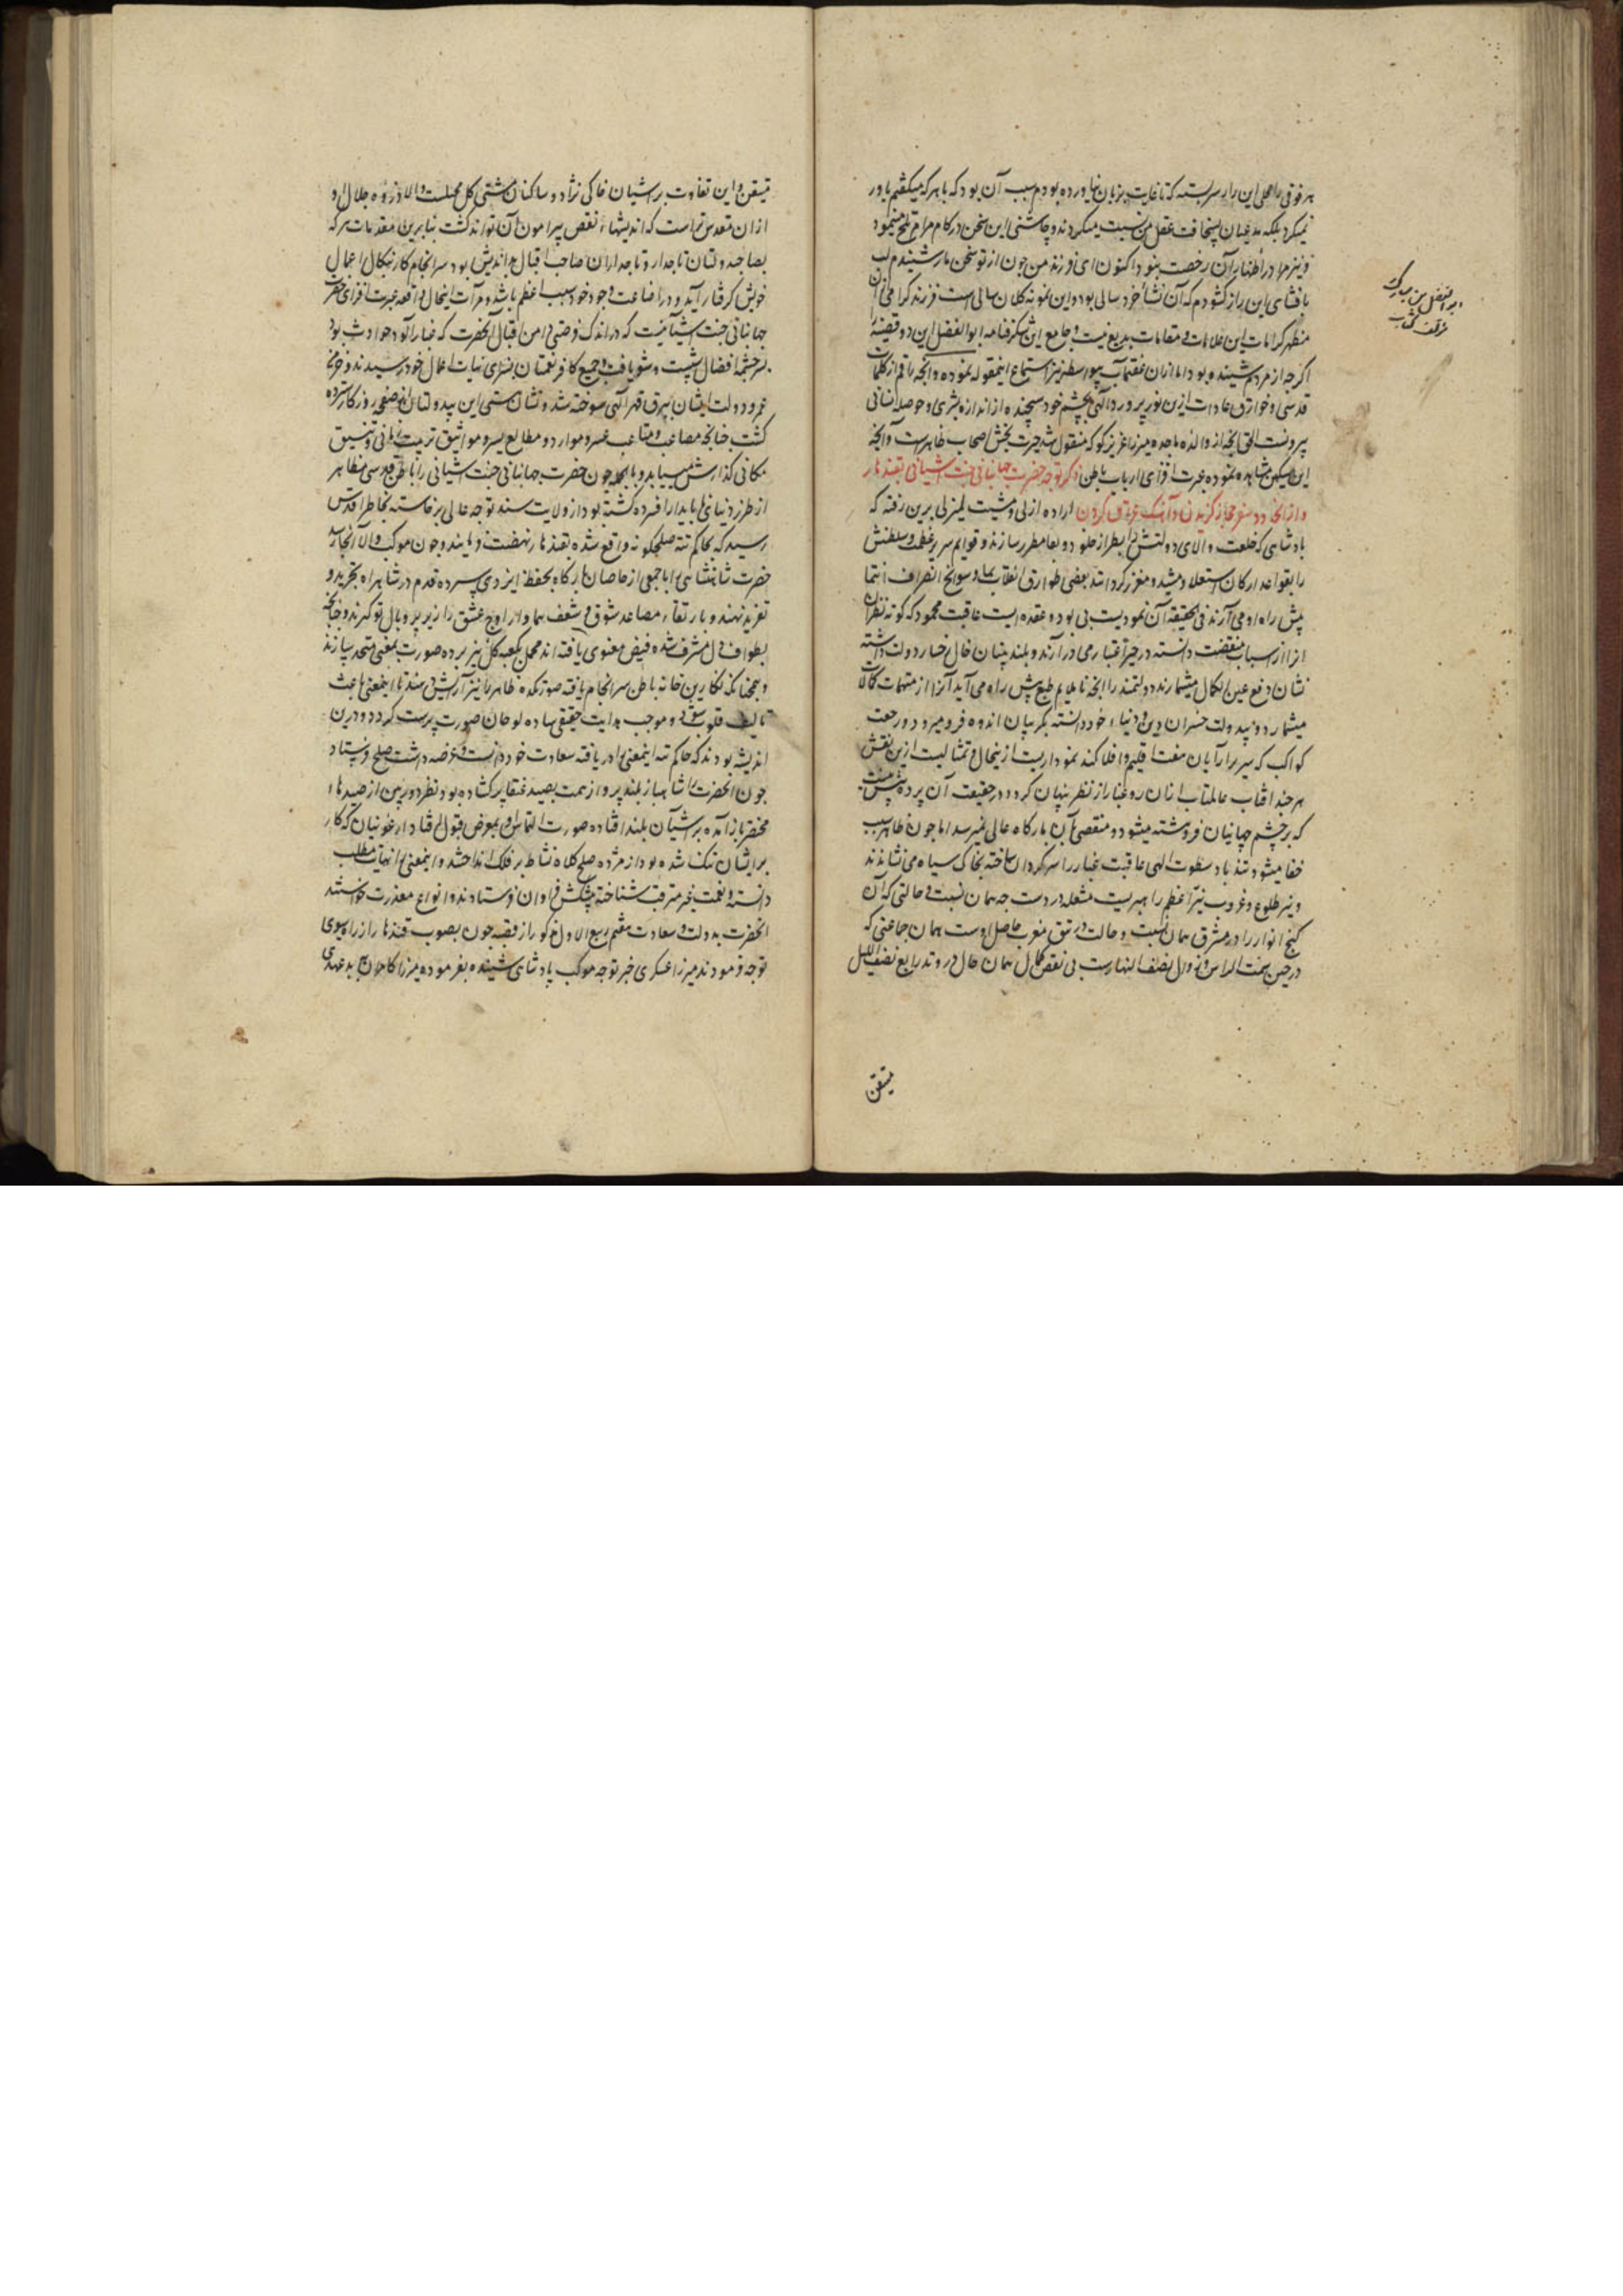 هر فوقی را محلی این راز سربسته که تا غایت بزبان نیاورده بودم سبب آن بود که با هر که میگفتم باور
نمیکرد بلکه مدعیان بسخافت عقل من نسبت میکردند و چاشنی این سخن در کام مزاج تلخ مینمود
و نیز مرا در اظهار آن رخصت نبود اکنون ای فرزند من چون از تو سخن مار شنیدم لب
بافشای این راز کشودم که آن نشأ خرد سالی بود و این نمونه کلان سالی است فرزند کرامی آن
مظهر کرامات این علامات و مقامات بدیع نیست و جامع این شکرفنامه ابوالفضل این دو قضیه
اگرچه از مردم شنیده بود اما ازان عفت مآب بیواسطه نیز استماع اینمقوله نموده و انچه راقم از کلمات
قدسی و خوارق عادات ازین نور پرورد الهی بچشم خود سنجیده از اندازه بشری و حوصله انسانی
بیرونست القصه انچه از والده ماجده میرزا عزیز کوکه منقول شد حیرت بخش اصحاب ظاهرست و انچه
این مسکین مشاهده نموده عبرت افزای ارباب باطن ذکر توجه حضرت جهانبانی جنت آشیانی بقندهار
و از انحدود سفر حجاز گزیدن و آهنگ عراق کردن اراده ازلی و مشیت لم یزلی برین رفته که
پادشاهی که خلعت والای دولتش را بطراز خلود و بقا مطرز سازند و قوایم سریر عظمت و سلطنتش
را بقواعد ارکان استعلا مشید و معزز گردانند بعضی طوارق انقلاب نما و سوانح انصراف انتما
پیش راه او می آرند فی الحقیقه آن نمودیست بی بود و عقده ایست عاقبت محمود که کوته نظران
انرا از اسباب منقصت دانسته در حیز اعتبار می درآرند و بلند بینان خال رخسار دولت داشته
نشان دفع عین الکمال میشمارند دولتمند را انچه ناملایم طبع پیش راه می آید آنرا از متممات کمالات
میشمارد و بیدولت خسران دین و دنیا خود دانسته بگریبان اندوه فرو میرود و رجعت
کواکب که سیر ارایان هفت اقلیم و افلاکند نموداریست ازینحال و تمثالیست ازین نقش
هر چند افتاب عالمتاب از ان رو غبار از نظر پنهان گردد در حقیقت آن پرده پیش نیست
که بر چشم جهانیان فروهشته میشود و منقصتی بآن بارگاه عالی نمیرسد اما چون ظاهر سبب
خفا میشود تندباد سطوت الهی عاقبت غبار را سرگردان ساخته بخاک سیاه می نشاند
و نیز طلوع و غروب نیر اعظم راهبریست مشعله در دست چه همان نسبت و حالتی که آن
گنج انوار را در مشرق همان نسبت و حالت در تتق مغرب حاصل اوست همان جماعتی که
در حین سمت الراس و زوال نصف النهارست بی نقص کمال همان حال در وتد رابع نصف اللیل
متیقن
ابوالفضل بن مبارک
مؤلف کتاب
متیقن و این تفاوت بر اشیان خاکی نژاد و ساکنان مشتی گل محیلست والا ذروه جلال او
ازان مقدس تر است که اندیشهای نقص پیرامون آن تواند گشت بنابرین مقدمات هر که
بصاحبدولتان تاجدار و تاجداران صاحب اقبال بد اندیش بود سرانجام کار بنکال اعمال
خویش گرفتار آید و در اضاعت وجود خود سبب اعظم باشد و مرآت اینحال واقعه عبرت افزای حضرت
جهانبانی جنت آشیانیست که در اندک فرصتی دامن اقبال آنحضرت که غبارآلود حوادث بود
بسرچشمه افضال شست و شو یافت و جمیع کافر نعمتان بسزای نیات اعمال خود رسیدند و خرمن
عمر و دولت ایشان ببرق قهر الهی سوخته شد و نشان هستی این بیدولتان از صفحه روزگار سترده
گشت چنانچه مصاعب و متاعب عسر و موارد و مطالع یسر و مواثیق تربیت زمانی و تنسیق
مکانی گذارش مییابد و بالجمله چون حضرت جهانبانی جنت آشیانی را باطن قدسی مظاهر
از طرز دنیای ناپایدار افسرده گشته بود از ولایت سند توجه عالی برخاسته بخاطر اقدس
رسید که بحاکم تته صلحگونه واقع شده بقندهار نهضت فرمایند و چون موکب والا آنجا رسد
حضرت شاهنشاهی را با جمعی از خاصان بارگاه بحفظ ایزدی سپرده قدم در شاهراه تجرید و
تفرید نهند و بارتقاء مصاعد شوق و شغف هماوار اوج عشق را زیر پر و بال توکل آرند و چنانچه
بطواف دل مشرف شده فیض معنوی یافته اند محمل بکعبه گل نیز برده صورت بمعنی متحد سازند
و همچنانکه نگارین خانه باطن سرانجام یافته صورتکده ظاهر را نیز آرایش دهند تا اینمعنی باعث
تالیف قلوب و موجب هدایت حقیقی ساده لوحان صورت پرست گردد و درین
اندیشه بودند که حاکم تته اینمعنی را دریافته سعادت خود دانست و عرضه داشت صلح فرستاد
چون آنحضرت را شاهباز بلند پرواز همت بصید عنقا پر کشاده بود نظر دوربین از صیدهای
محقر بازآمده بر آشیان بلند افتاده صورت التماس او بمعرض قبول افتاد ارغونیان که کار
بر ایشان تنگ شده بود از مژده صلح کلاه نشاط بر فلک انداختند و اینمعنی را نهایت مطلب
دانسته و نعمت غیر مترقب شناخته پیشکش فراوان فرستادند و انواع معذرت خواستند
آنحضرت بدولت و سعادت هفتم ربیع الاول مذکور از قصبه جون بصوب قندهار از راه سیوی
توجه فرمودند میرزا عسکری خبر توجه موکب پادشاهی شنیده بفرموده میرزا کامران بدعهدی